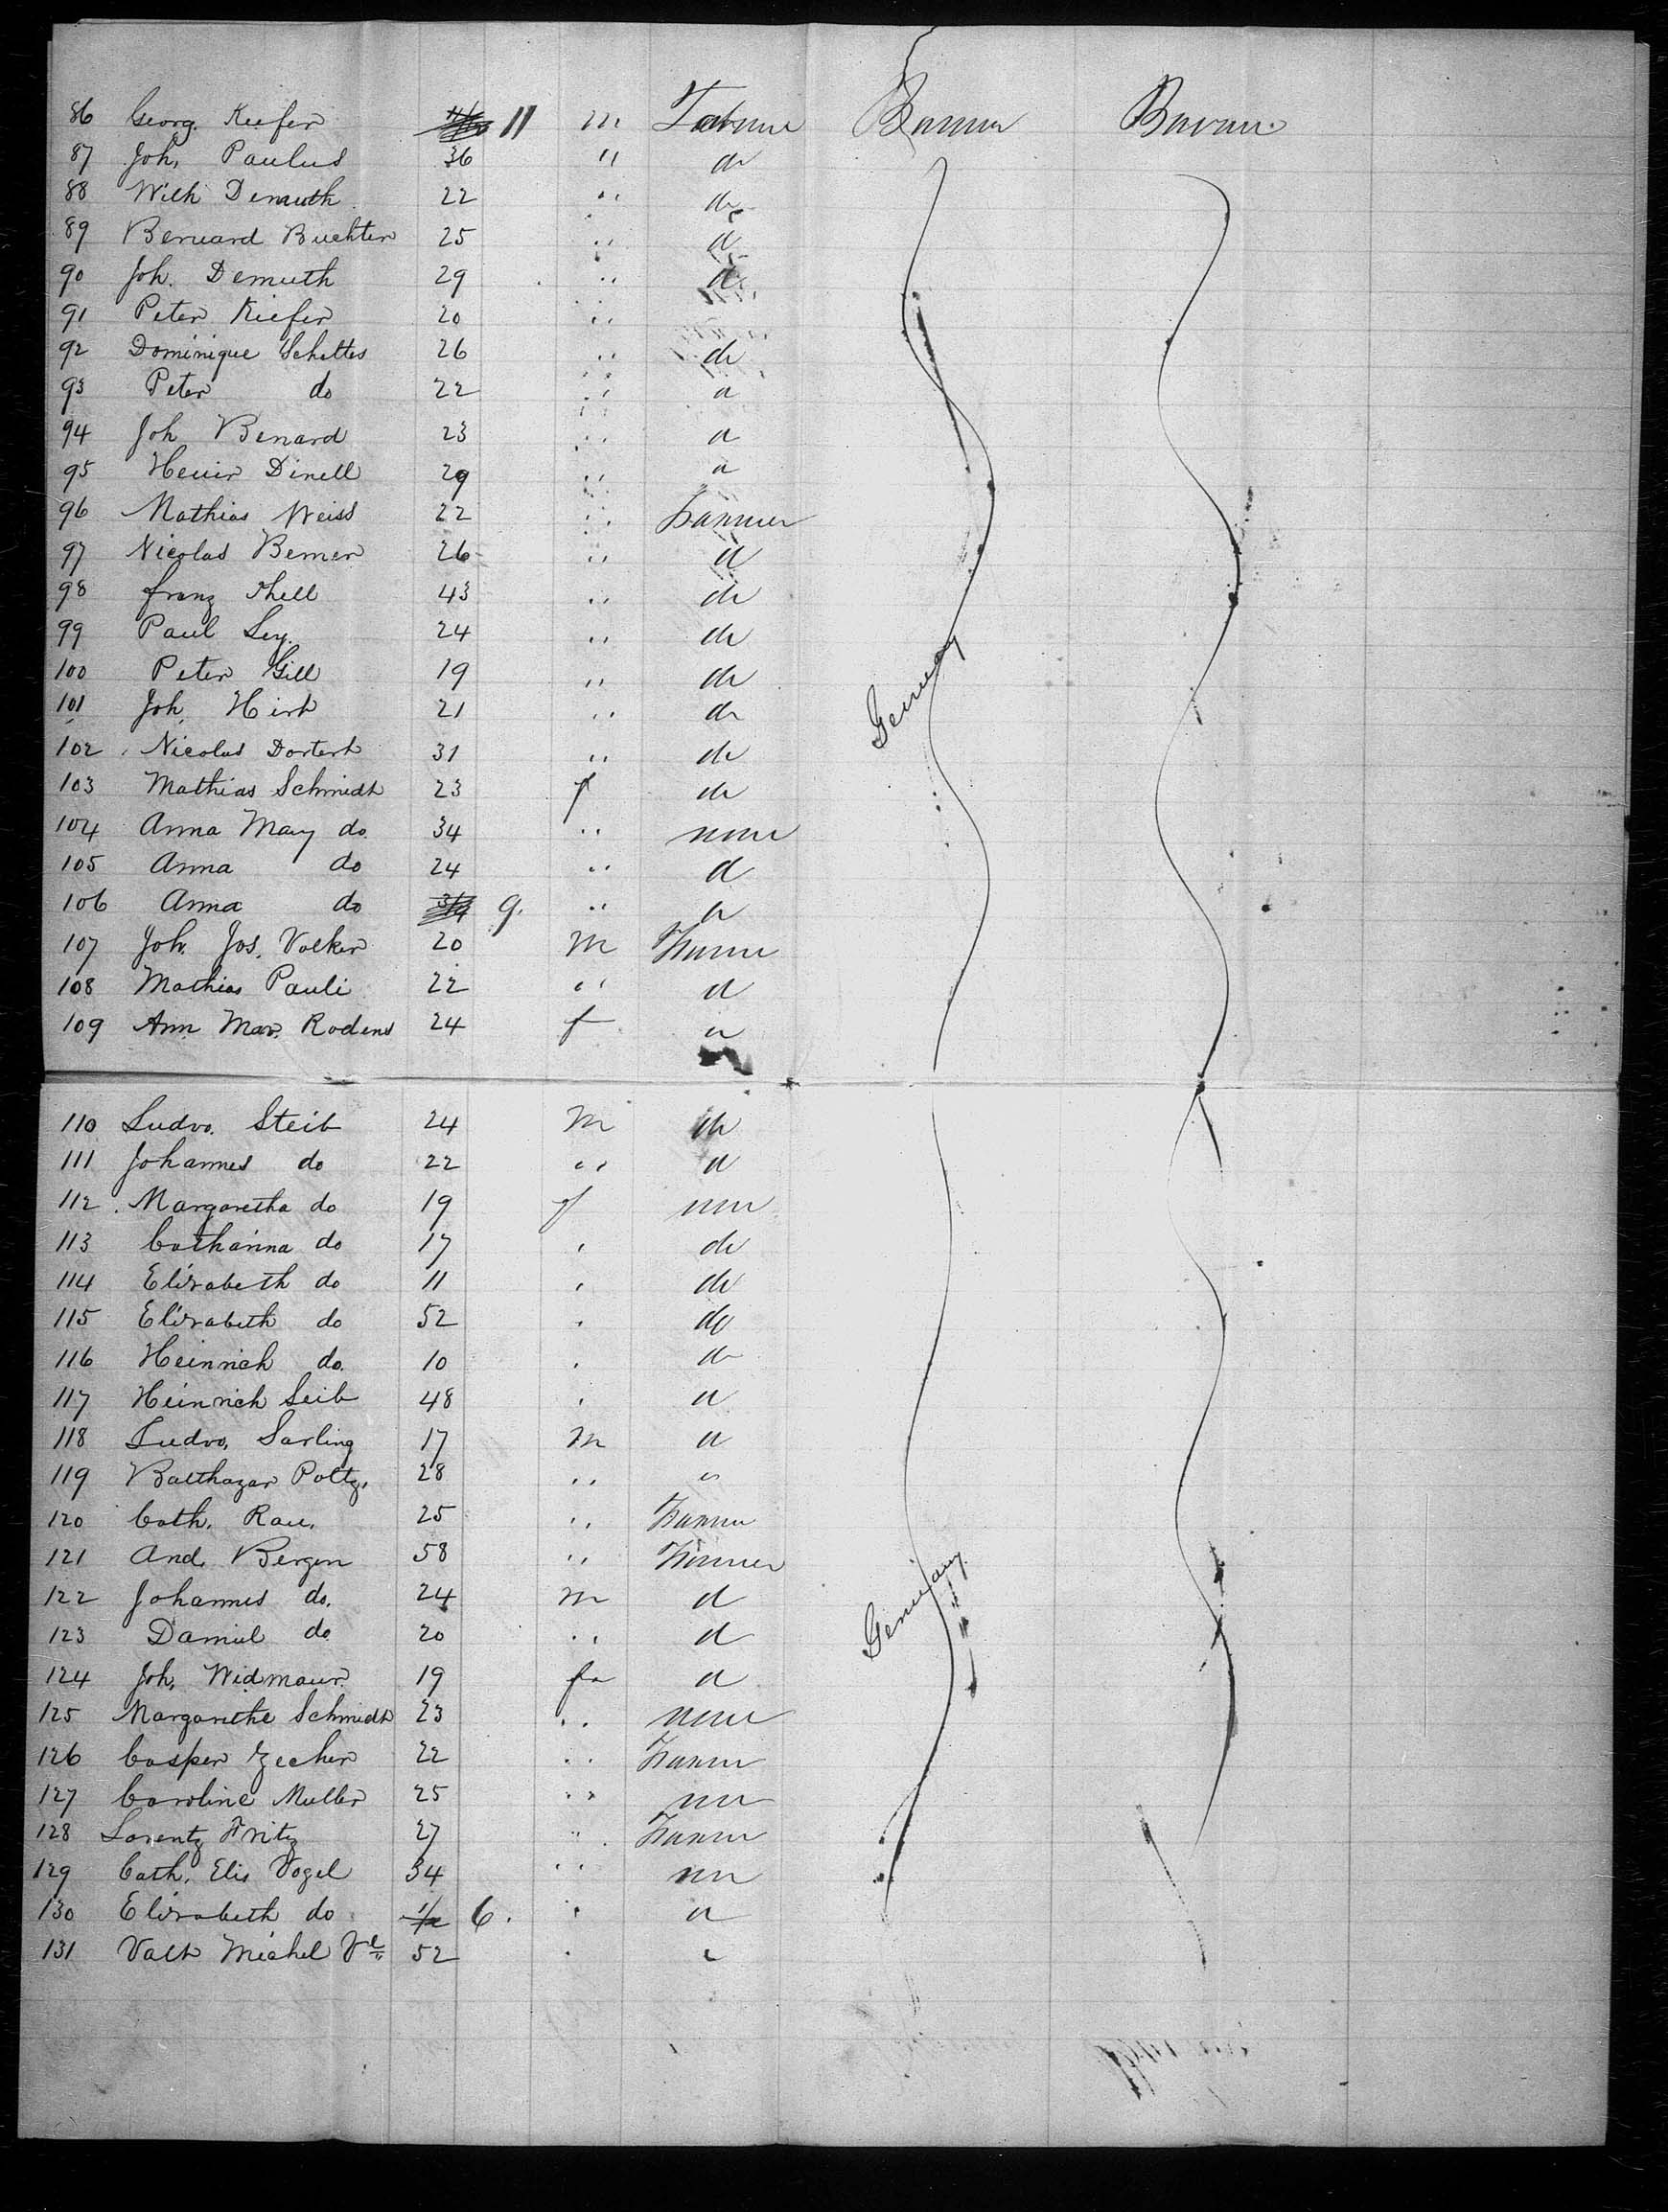 86 Georg. Kiefer 11 m
87 Joh. Paulus 36 " do
88 Wilh Demuth 22 " do
89 Bernard Buchter 25 " do
90 Joh. Demuth 29 " do
91 Peter Kiefer 20 "
92 Dominique Schettes 26 " do
93 Peter do 22 " do
94 Joh Benard 23 " do
95 Dinell 29 " do
96 Mathias Weiss 22 "
97 Nicolas Bemer 26 " do
98 franz 43 " do
99 Paul Ley. 24 " do
100 Peter Gill 19 " do
101 Joh. Hirt 21 " do
102 Nicolas Dortert 31 " do
103 Mathias Schmidt 23 f do
104 Anna Mary do 34 " none
105 Anna do 24 " do
106 Anna do 9. " do
107 Joh. Jos. Volker 20 m
108 Mathias Pauli 22 " do
109 Ann Mar. Rodens 24 f do
Germany
110 Ludvo. Steib 24 m do
111 Johannes do 22 " do
112 Margaretha do 19 f
113 Catharina do 17 " do
114 Elisabeth do 11 " do
115 Elisabeth do 52 " do
116 Heinrich do. 10 " do
117 Heinrich Seib 48 " do
118 Ludvo. Sarling 17 m do
119 Balthazar Poltz. 28 " do
120 Cath. Rau. 25 "
121 And. Bergen 58 "
122 Johannes do. 24 m do
123 Daniel do 20 " do
124 Joh. Widmaur 19 do
125 Margarithe Schmidt 23 " none
126 Casper Zecher 22 "
127 Caroline Muller 25 "
128 Lorentz Fritz 27 "
129 Cath. Elis Vogel 34 "
130 Elisabeth do 6. " do
131 Valt Michel Vl 52 "
Germany